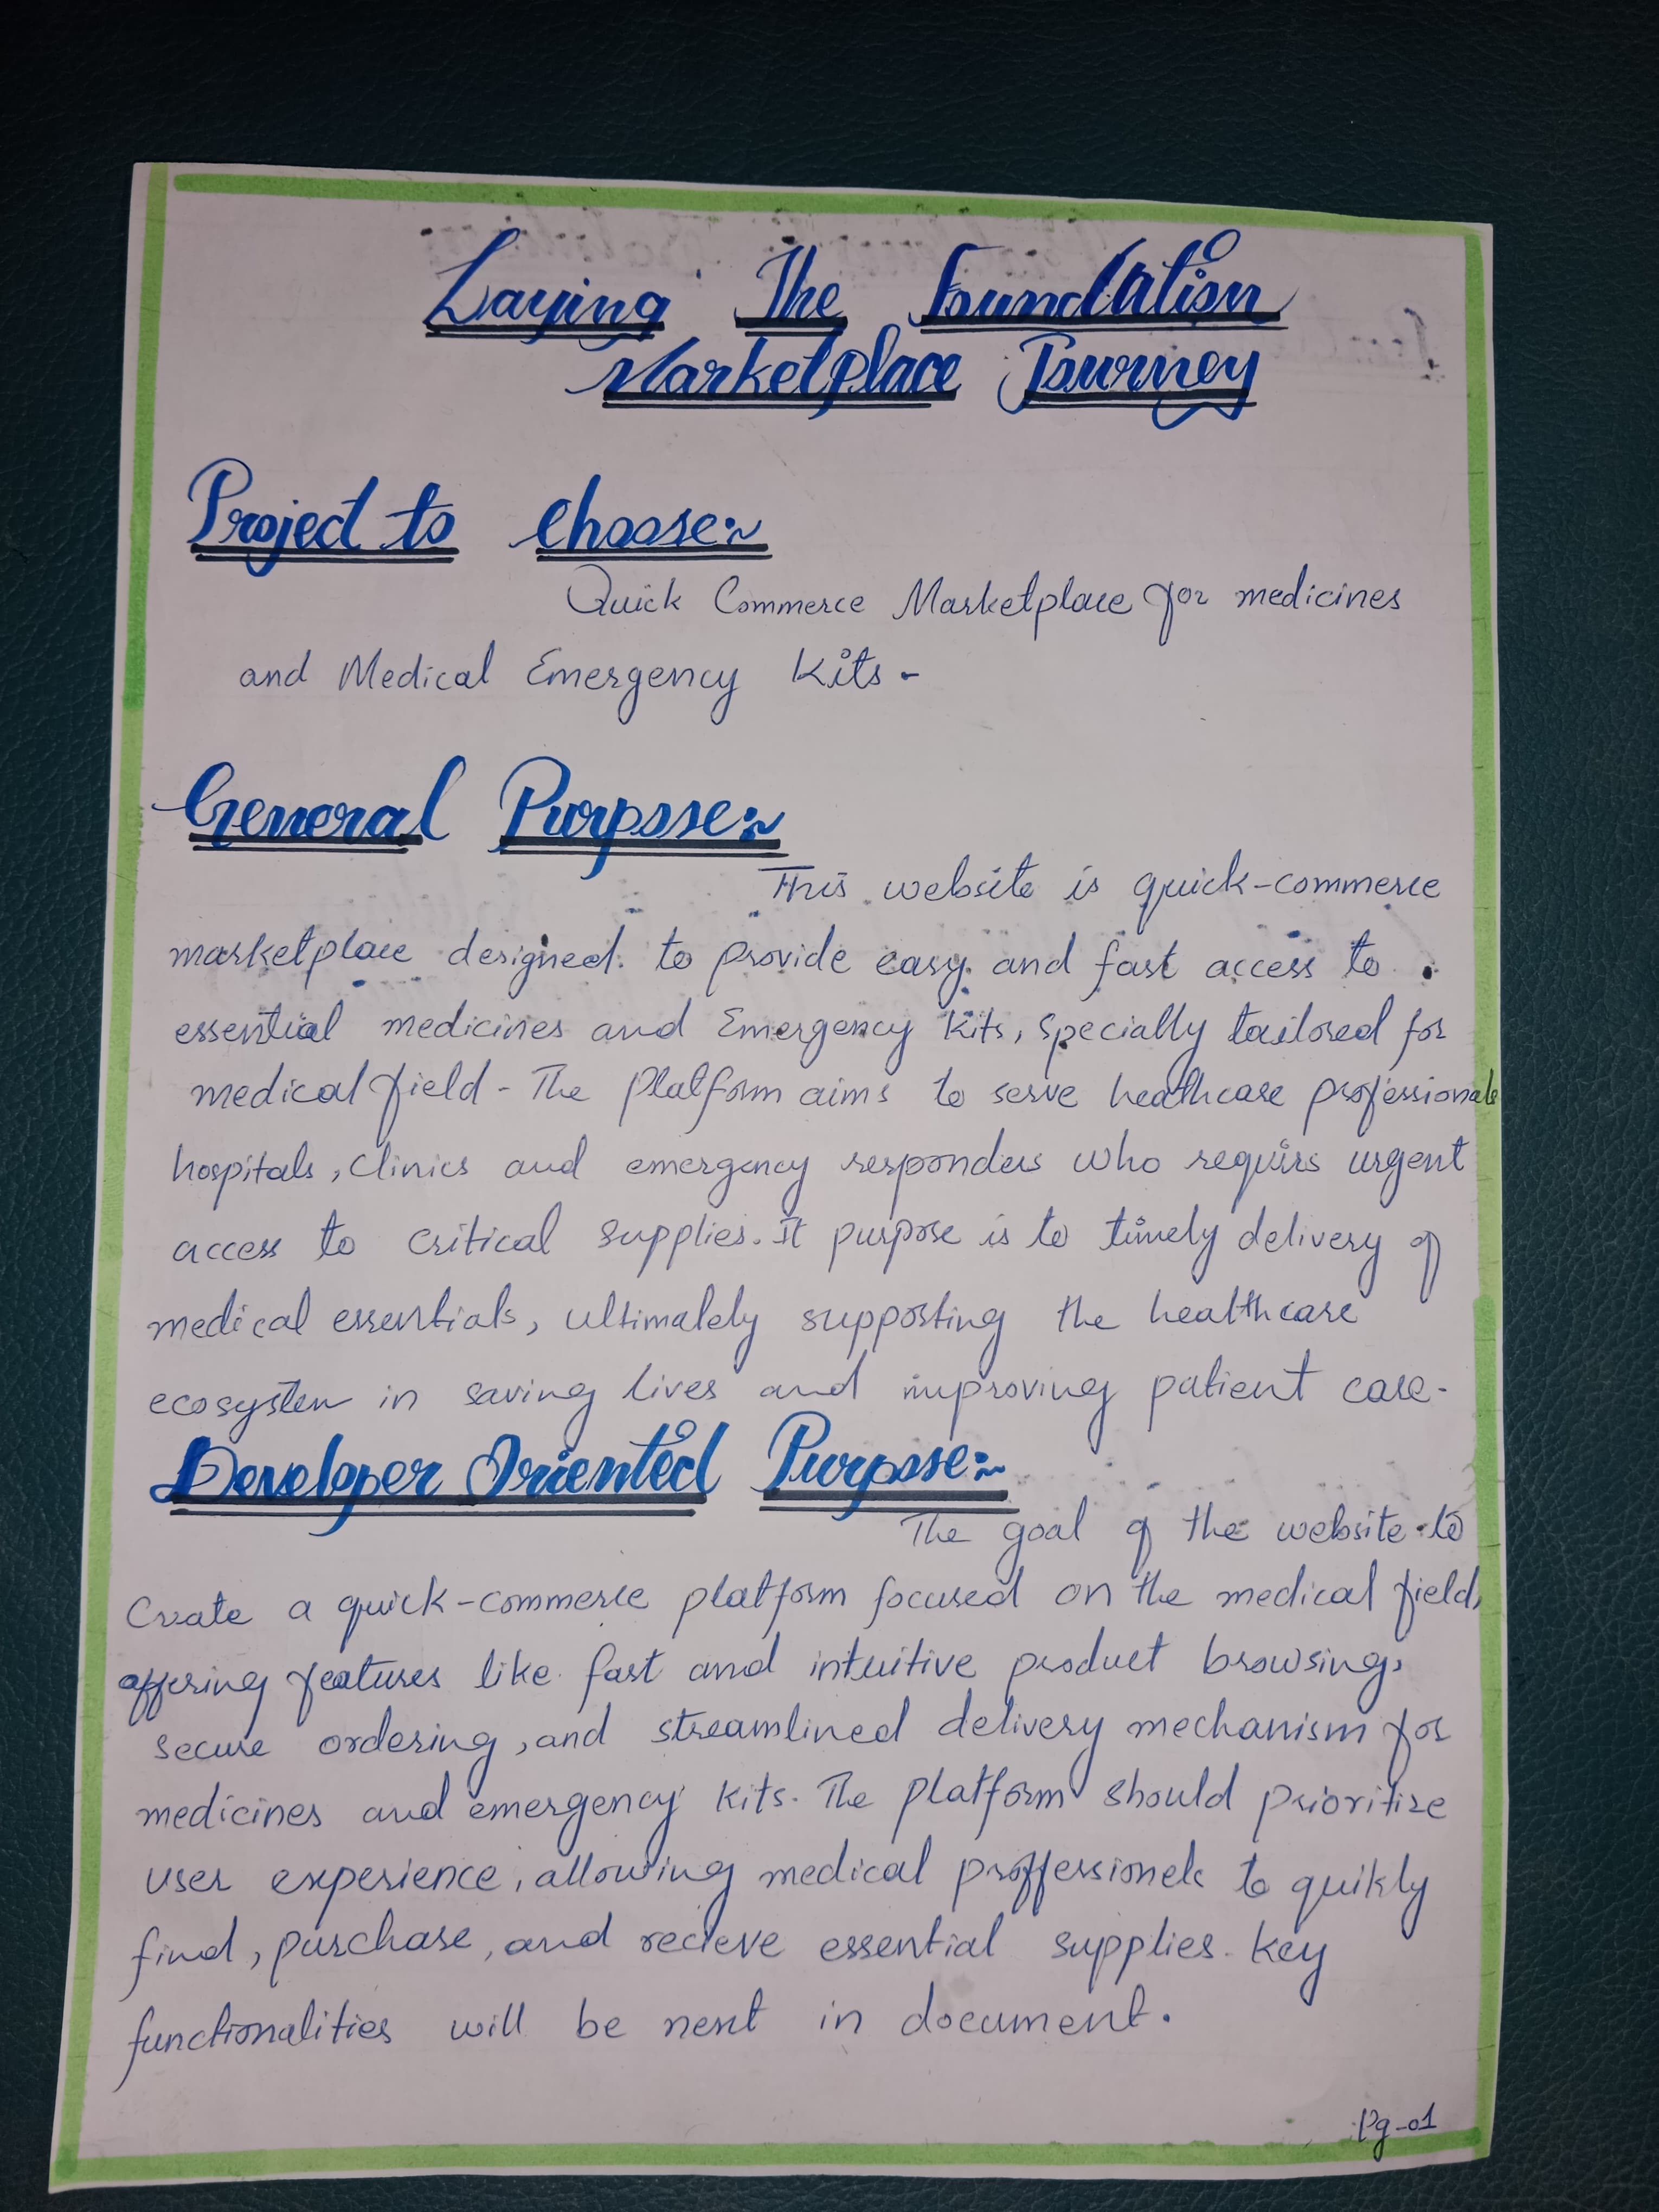 Laying The Foundation
Marketplace Journey
Project to choose:~
Quick Commerce Marketplace for medicines
and Medical Emergency Kits-
General Purpose:~
This website is quick-commerce
marketplace designed to provide easy and fast access to
essential medicines and Emergency Kits, specially tailored for
medical field - The Platform aims to serve healthcare professionals
hospitals, clinics and emergency responders who requirs urgent
access to critical supplies. It purpose is to timely delivery of
medical essentials, ultimately supporting the healthcare
ecosystem in saving lives and improving patient care-
Developer Oriented Purpose:~
The goal of the website to
Create a quick-commerce platform focused on the medical field,
offering features like fast and intuitive product browsing,
secure ordering, and streamlined delivery mechanism for
medicines and emergency kits. The platform should prioritize
user experience, allowing medical proffessionels to quikly
find, purchase, and recieve essential supplies. Key
functionalities will be next in document.
Pg-01